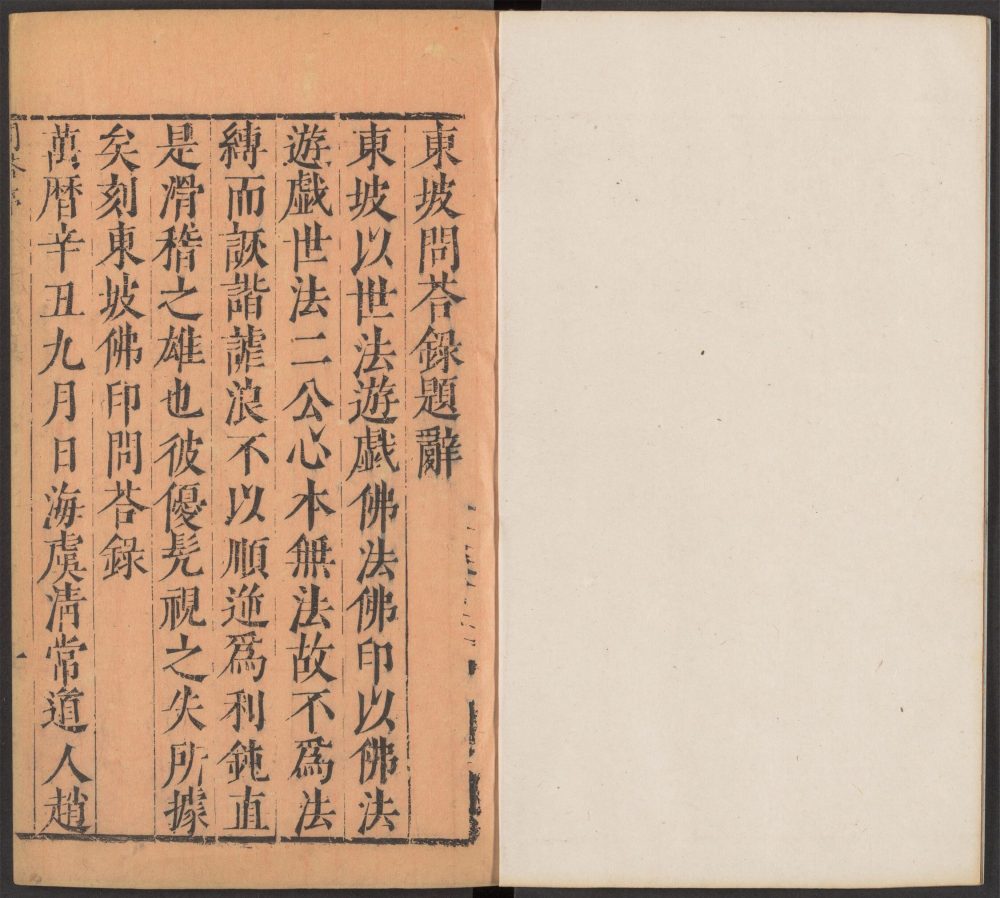 東坡問荅錄題辭
東坡以世法遊戯佛法佛印以佛法
遊戯世法二公心本無法故不爲法
縛而詼諧謔浪不以順逆爲利鈍直
是滑稽之雄也彼優髡視之失所據
矣刻東坡佛印問荅錄
萬曆辛丑九月日海虞淸常道人趙
一